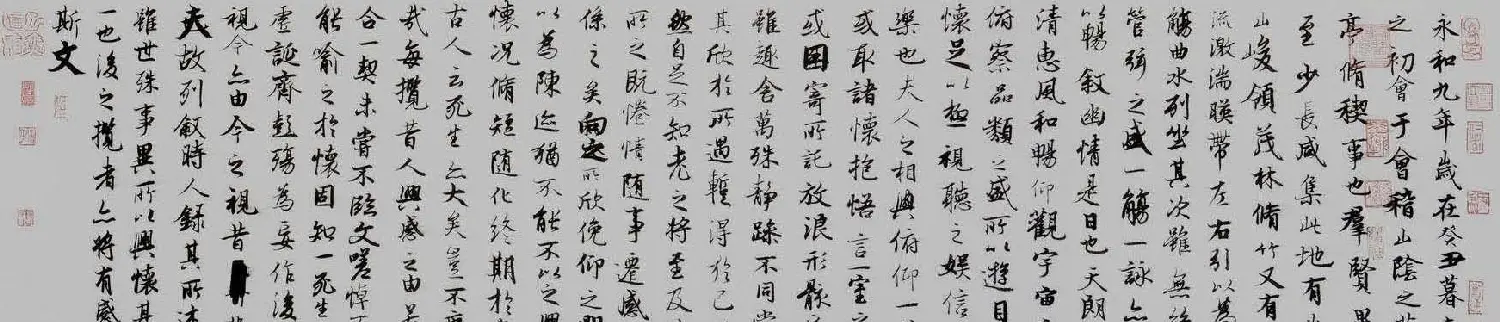 永和九年歲在癸丑暮
之初會于會稽山陰之
亭脩稧事也羣賢畢
至少長咸集此地有
山峻領茂林脩竹又有
流激湍暎帶左右引以為
觴曲水列坐其次雖無絲
管弦之盛一觴一詠亦
以暢敘幽情是日也天朗
清惠風和暢仰觀宇宙
俯察品類之盛所以遊目
懷足以極視聽之娛信
樂也夫人之相與俯仰一
或取諸懷抱悟言一室之
或因寄所託放浪形骸
雖趣舍萬殊靜躁不同當
其欣於所遇蹔得於己
然自足不知老之將至及
所之既惓情隨事遷感
係之矣向之所欣俛仰之間
以為陳迹猶不能不以之興
懷況脩短隨化終期於
古人云死生亦大矣豈不
哉每攬昔人興感之由若
合一契未嘗不臨文嗟悼
能喻之於懷固知一死生
虛誕齊彭殤為妄作後
視今亦由今之視昔
夫故列敘時人錄其所述
雖世殊事異所以興懷其
一也後之攬者亦將有感
斯文